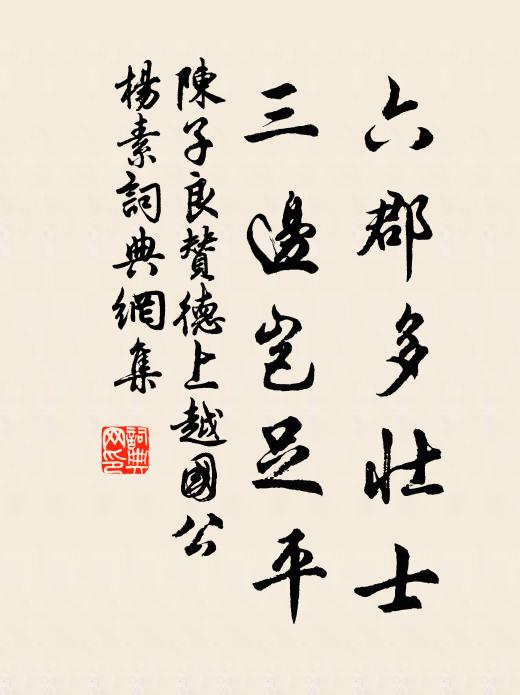 六郡多壯士
三邊豈足平
陳子良贊德上越國公
楊素詞典網集
詞典網印